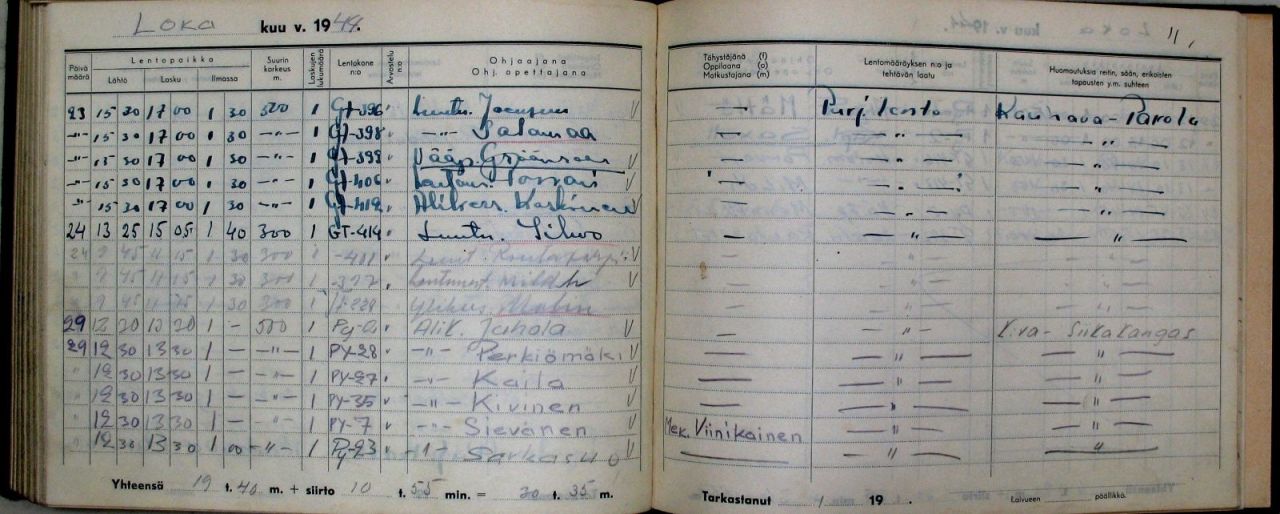 Loka kuu v. 1944.
Päivä määrä Lentopaikka Lähtö Lasku Ilmassa Suurin korkeus m. Laskujen lukumäärä Lentokone n:o Arvostelu n:o Ohjaajana Ohj. opettajana
23 15 30 17 00 1 30 500 1 GT-396 Luutn.
-"- 15 30 17 00 1 30 -"- 1 GT-398 -"- Salamaa
-"- 15 30 17 00 1 30 -"- 1 GT-399 Vääp.
-"- 15 30 17 00 1 30 -"- 1 GT-406
-"- 15 30 17 00 1 30 -"- 1 GT-412 Alikers. Koskinen
24 13 25 15 05 1 40 300 1 GT-414 Luutn. Silvo
24 9 45 11 15 1 30 300 1 Luut.
9 45 11 15 1 30 300 1
9 45 11 15 1 30 300 1
29 12 20 13 20 1 - 500 1 Alik. Juhola
29 12 30 13 30 1 - -"- 1 PY-28 -"- Perkiömäki
" 12 30 13 30 1 - -"- 1 PY-27 -"- Kaila
" 12 30 13 30 1 - -"- 1 PY-35 -"- Kivinen
" 12 30 13 30 1 - -"- 1 PY-7 -"- Sievänen
" 12 30 13 30 1 00 -"- 1 Py-23 -"- Sarkasuo
Yhteensä 19 t. 40 m. + siirto 10 t. 55 min. = 30 t. 35 m.
11.
Tähystäjänä (t) Oppilaana (o) Matkustajana (m) Lentomääräyksen n:o ja tehtävän laatu Huomautuksia reitin, sään, erikoisten tapausten y.m. suhteen
— Purjelento Kauhava-Parola
— — " — — " —
— — " — — " —
— — " — — " —
— — " — — " —
— — " — — " —
— — " — — " —
— — " — — " —
— — " — — " —
— — " — Kiva- Siikakangas
— — " — — " —
— — " — — " —
— — " — — " —
Mek. Viinikainen — " — — " —
— — " — — " —
Tarkastanut / 19 . Laivueen päällikkö.